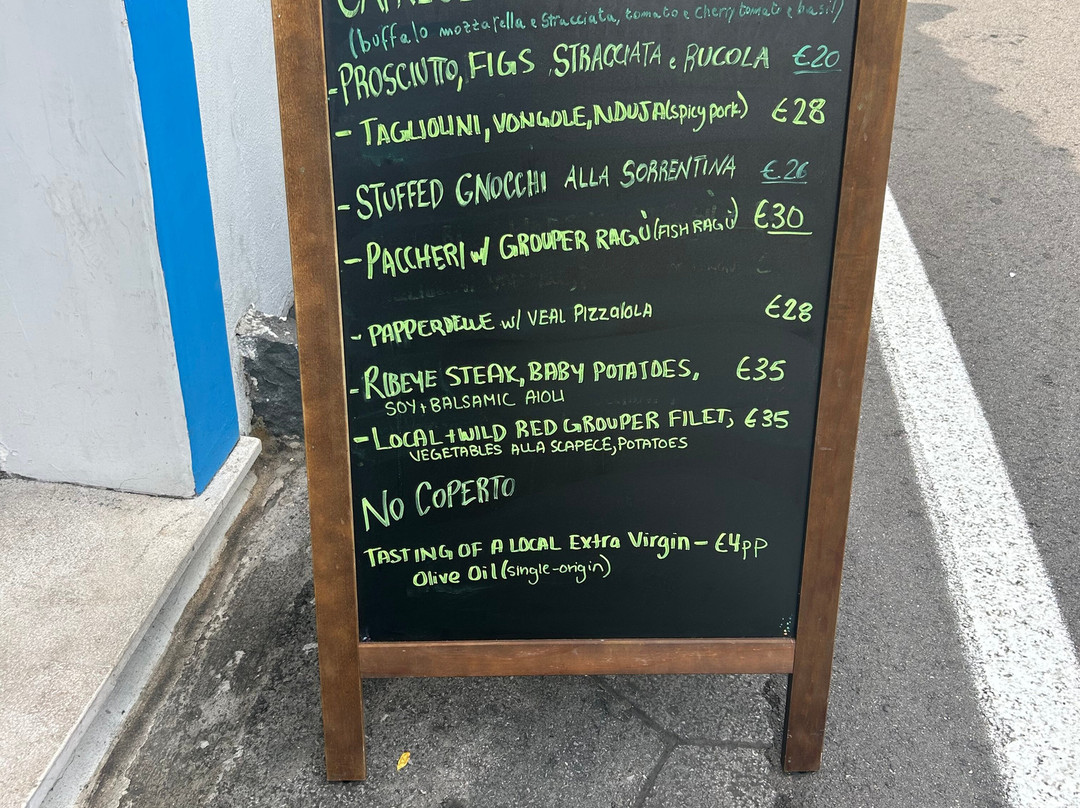 (buffalo mozzarella e stracciata, tomato e cherry tomato e basil)
- PROSCIUTTO, FIGS, STRACCIATA e RUCOLA €20
- TAGLIOLINI, VONGOLE, NDUJA (spicy pork) €28
- STUFFED GNOCCHI ALLA SORRENTINA €26
- PACCHERI w/ GROUPER RAGÙ (FISH RAGÙ) €30
- PAPPERDELLE w/ VEAL PIZZaIOLA €28
- RIBEYE STEAK, BABY POTATOES, €35
SOY + BALSAMIC AIOLI
- LOCAL + WILD RED GROUPER FILET, €35
VEGETABLES ALLA SCAPECE, POTATOES
NO COPERTO
TASTING OF A LOCAL Extra Virgin - €4pp
Olive Oil (single-origin)